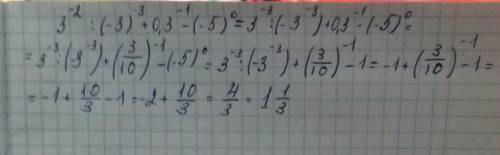 3⁻² : (-3)⁻³ + 0,3⁻¹ - (-5)⁰ = 3⁻³ : (-3⁻³) + 0,3⁻¹ - (-5)⁰ =
= 3⁻³ : (-3⁻³) + (3/10)⁻¹ - (-5)⁰ = 3⁻³ : (-3⁻³) + (3/10)⁻¹ - 1 = -1 + (3/10)⁻¹ - 1 =
= -1 + 10/3 - 1 = -2 + 10/3 = 4/3 = 1 1/3